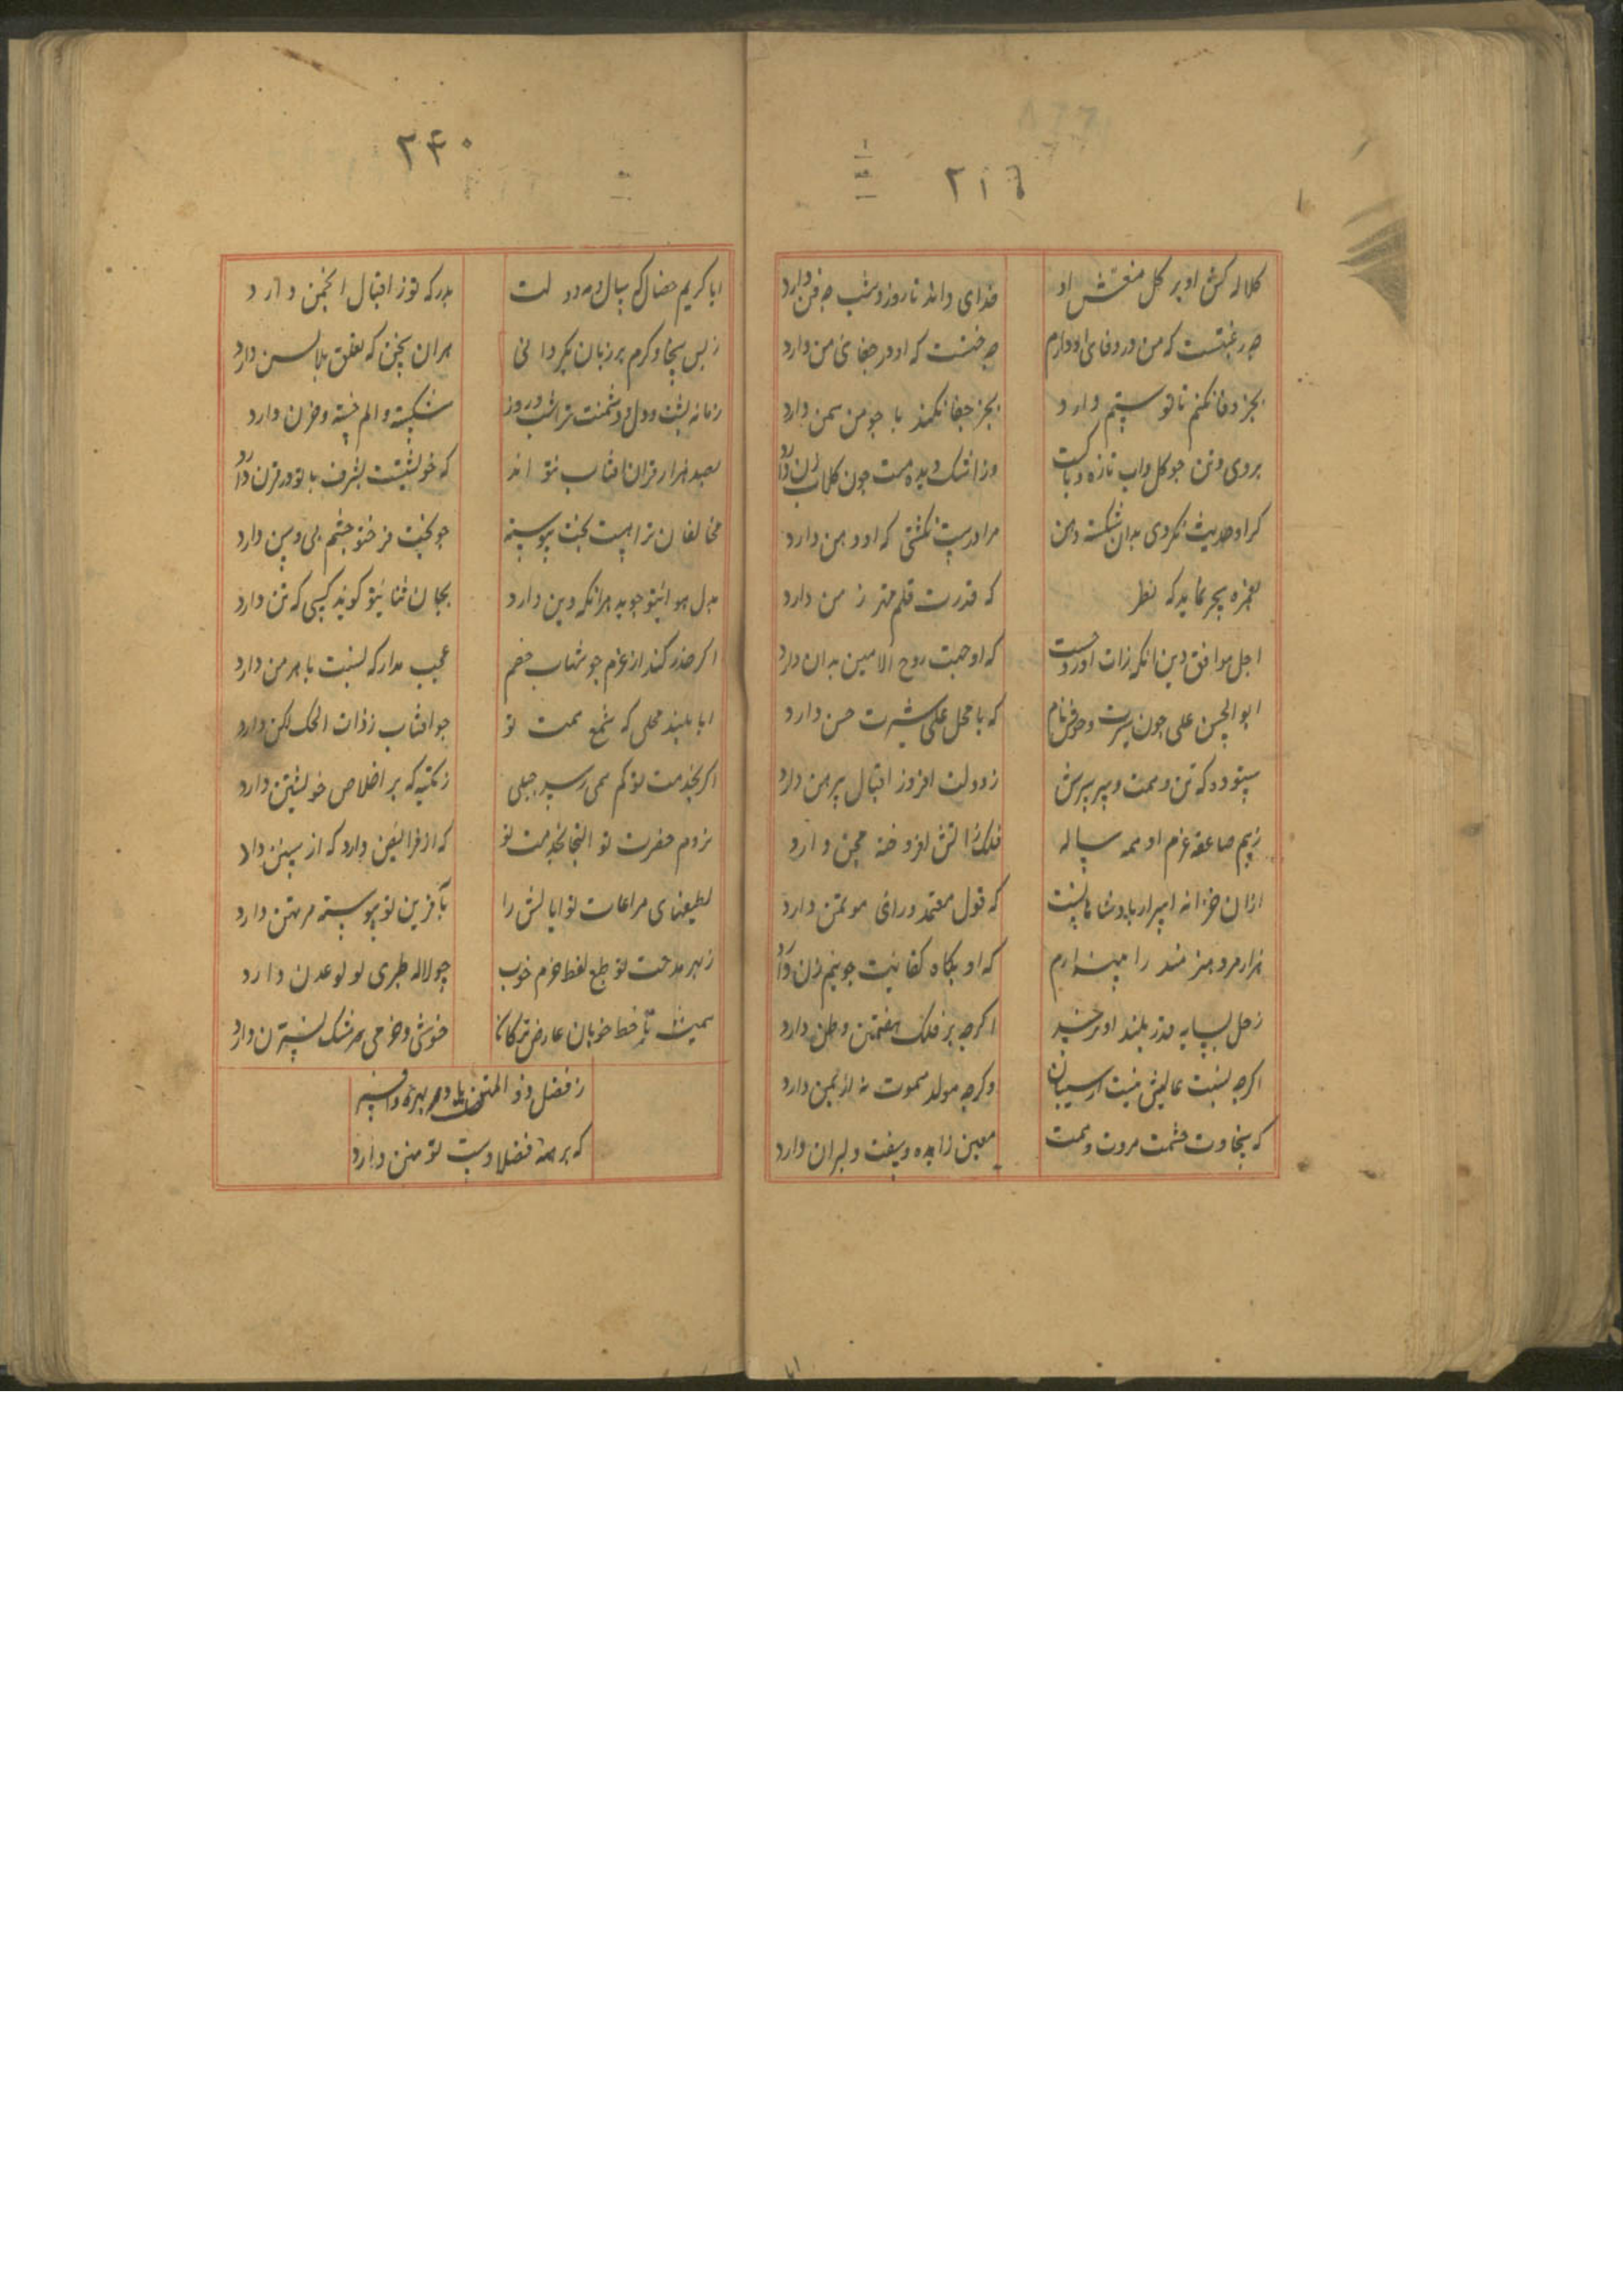 ۲۱٦
کلاله کش او بر کل منقش او
خدای داند تا روز و شب چه فن دارد
چه رغبتست که من در وفای او دارم
چه خشست که او در جفای من دارد
بجز وفا نکنم تا تو ستم دارد
بجز جفا نکند با چو من سمن دارد
بروی وتن چو کل واب تازه و پاکست
وز اشک دیده همت چون کلاب زن دارد
کر او حدیث نکردی بدان شکسته دهن
مرا درست نکشتی که او دهن دارد
بغمزه سحر نماید که نظر
که قدرت قلم من دارد
اجل موافق دین انکه زات اورد
که او صحبت روح الامین بدان دارد
ابو الحسن علی چون سیرت وخوش نام
که با محل علی سیرت حسن دارد
ستوده که تن وهمت وپیرهنش
ز دولت افروز اقبال پیرهن دارد
ز بیم صاعقه عزم او همه ساله
فلک ز اتش افروخته مجن دارد
ازان خزانه اسرار پادشاهانست
که قول معتمد ورای موتمن دارد
هزار مرد هنرمند را
که او بکاه کفایت چو نیم زن دارد
زحل بسایه قدر بلند او نرسید
اکرچه بر فلک هفتمین وطن دارد
اکرچه نسبت عالیش نیست از سیبان
وکرچه مولد میموت نه از یمن دارد
که سخاوت قسمت مروت وهمت
معین زایده وسیفت ولبران دارد
ابا
۲۴۰
ایا کریم خصال که سال ومه دولت
بدرکه تو ز اقبال انجمن دارد
ز بس سخا وکرم بر زبان بکردانی
هران سخن که تعلق بلا ولن دارد
زمانه پشت ودل دشمنت تراشب وروز
شکسته والم خسته وحزن دارد
بصد هزار قران افتاب نتواند
که خویشتنت بشرف با تو در قرن دارد
مخالفان ترا هست بخت پیوسته
چو بخت فرخ تو چشم بی وسن دارد
بدل هوایتو جوید هرانکه دین دارد
بجان ثنایتو کوید کسی که تن دارد
اکر حذر کند از عزم چو شهاب خصم
عجب مدار که نسبت باهرمن دارد
ایا بلند محلی که شمع همت تو
چو افتاب ز ذات الحبک لکن دارد
اکر بخدمت تو کم همی رسد جبلی
ز نکته که بر اخلاص خویشتن دارد
بزوم حضرت تو التجا بخدمت تو
که از فرایض دارد که از سنن دارد
لطیفهای مراعات تو ایالش را
بآفرین تو پیوسته مرتهن دارد
ز بهر مدحت تو طبع لفظ خرم خوب
چو لاله طری لولو عدن دارد
همیشه تا خط خوبان عارض ترکان
خوشی وخرمی مشک نسترن دارد
ز فضل ذو المنن
که بر همه فضلا دست تو منن دارد